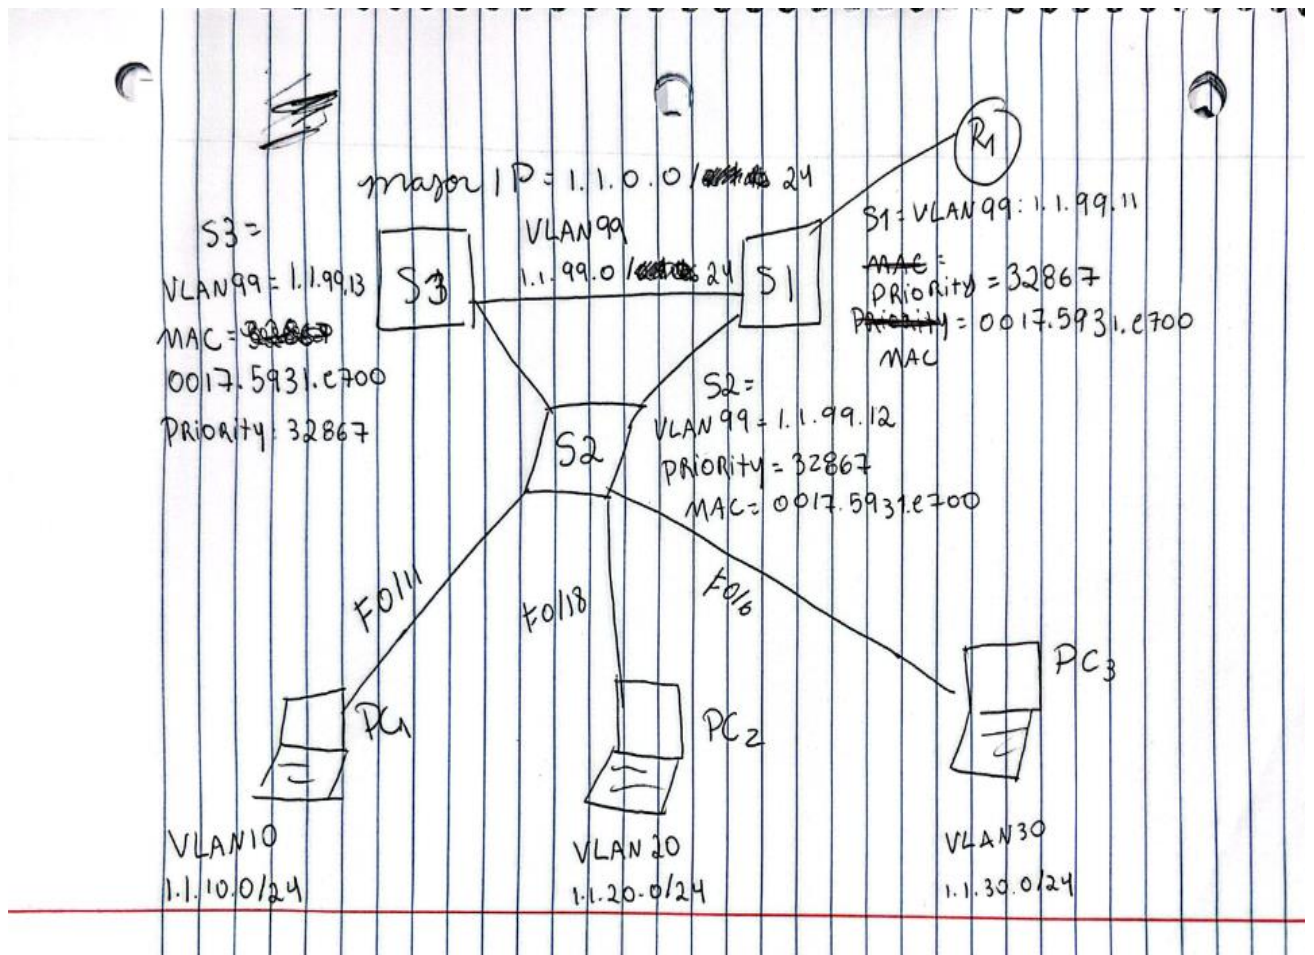 major IP = 1.1.0.0/ 24
R1
S3 =
VLAN99 = 1.1.99.13
MAC =
0017.5931.e700
PRiORity: 32867
S3
VLAN99
1.1.99.0/ 24
S1
S1 = VLAN99: 1.1.99.11
MAC =
PRiORity = 32867
PRiORity = 0017.5931.e700
MAC
S2 =
VLAN99 = 1.1.99.12
PRiORity = 32867
MAC = 0017.5931.e700
S2
F0/11
F0/18
F0/6
PC1
PC2
PC3
VLAN10
1.1.10.0/24
VLAN20
1.1.20.0/24
VLAN30
1.1.30.0/24